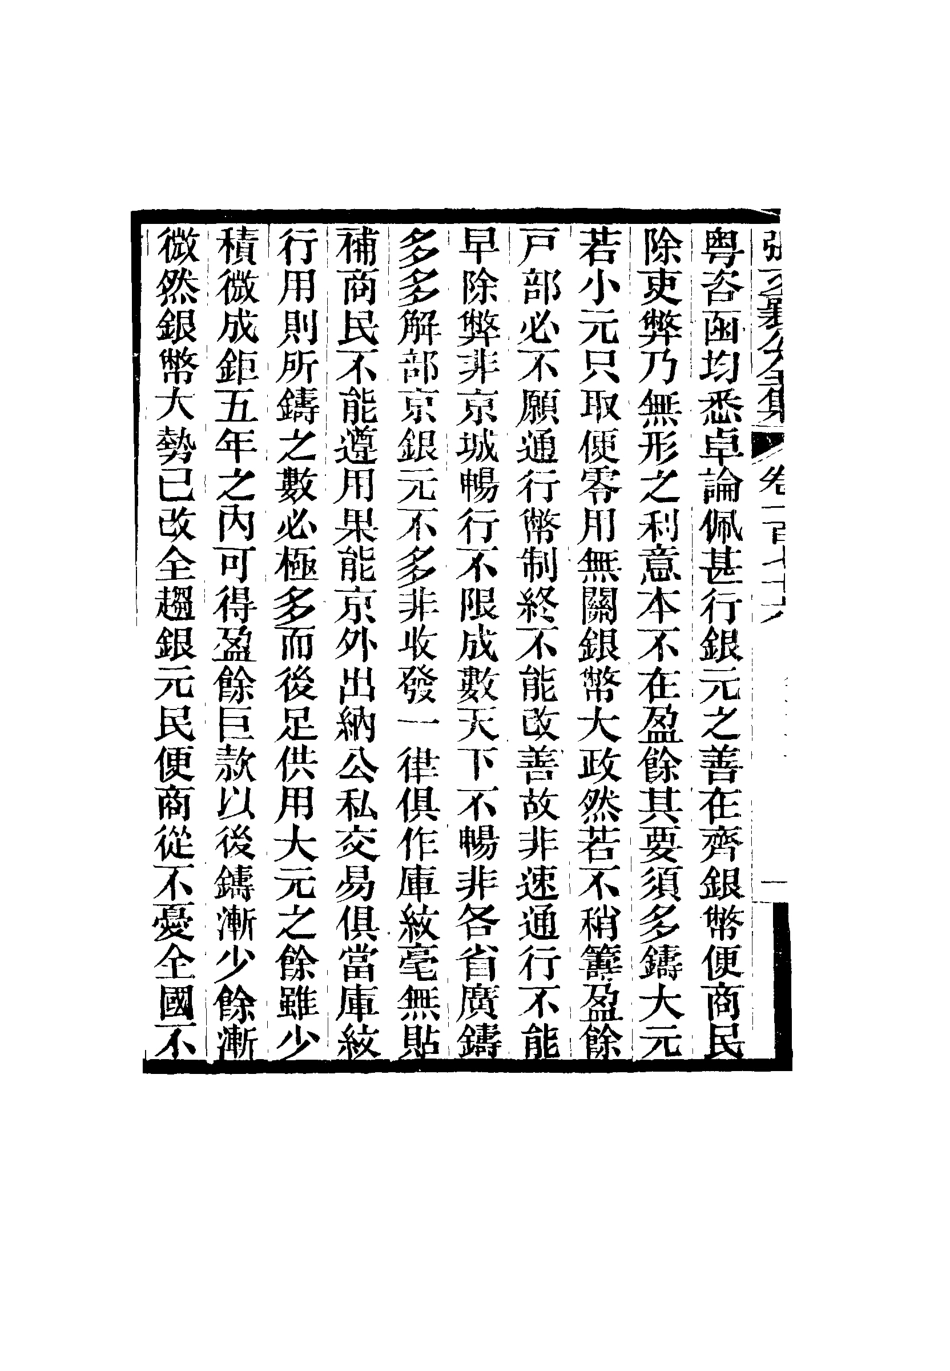 張文襄公全集 卷一百七十六 一
粵咨函均悉卓論佩甚行銀元之善在齊銀幣便商民
除吏弊乃無形之利意本不在盈餘其要須多鑄大元
若小元只取便零用無關銀幣大政然若不稍籌盈餘
戸部必不願通行幣制終不能改善故非速通行不能
早除弊非京城暢行不限成數天下不暢非各省廣鑄
多多解部京銀元不多非收發一律俱作庫紋毫無貼
補商民不能遵用果能京外出納公私交易俱當庫紋
行用則所鑄之數必極多而後足供用大元之餘雖少
積微成鉅五年之內可得盈餘巨款以後鑄漸少餘漸
微然銀幣大勢已改全趨銀元民便商從不憂全國不